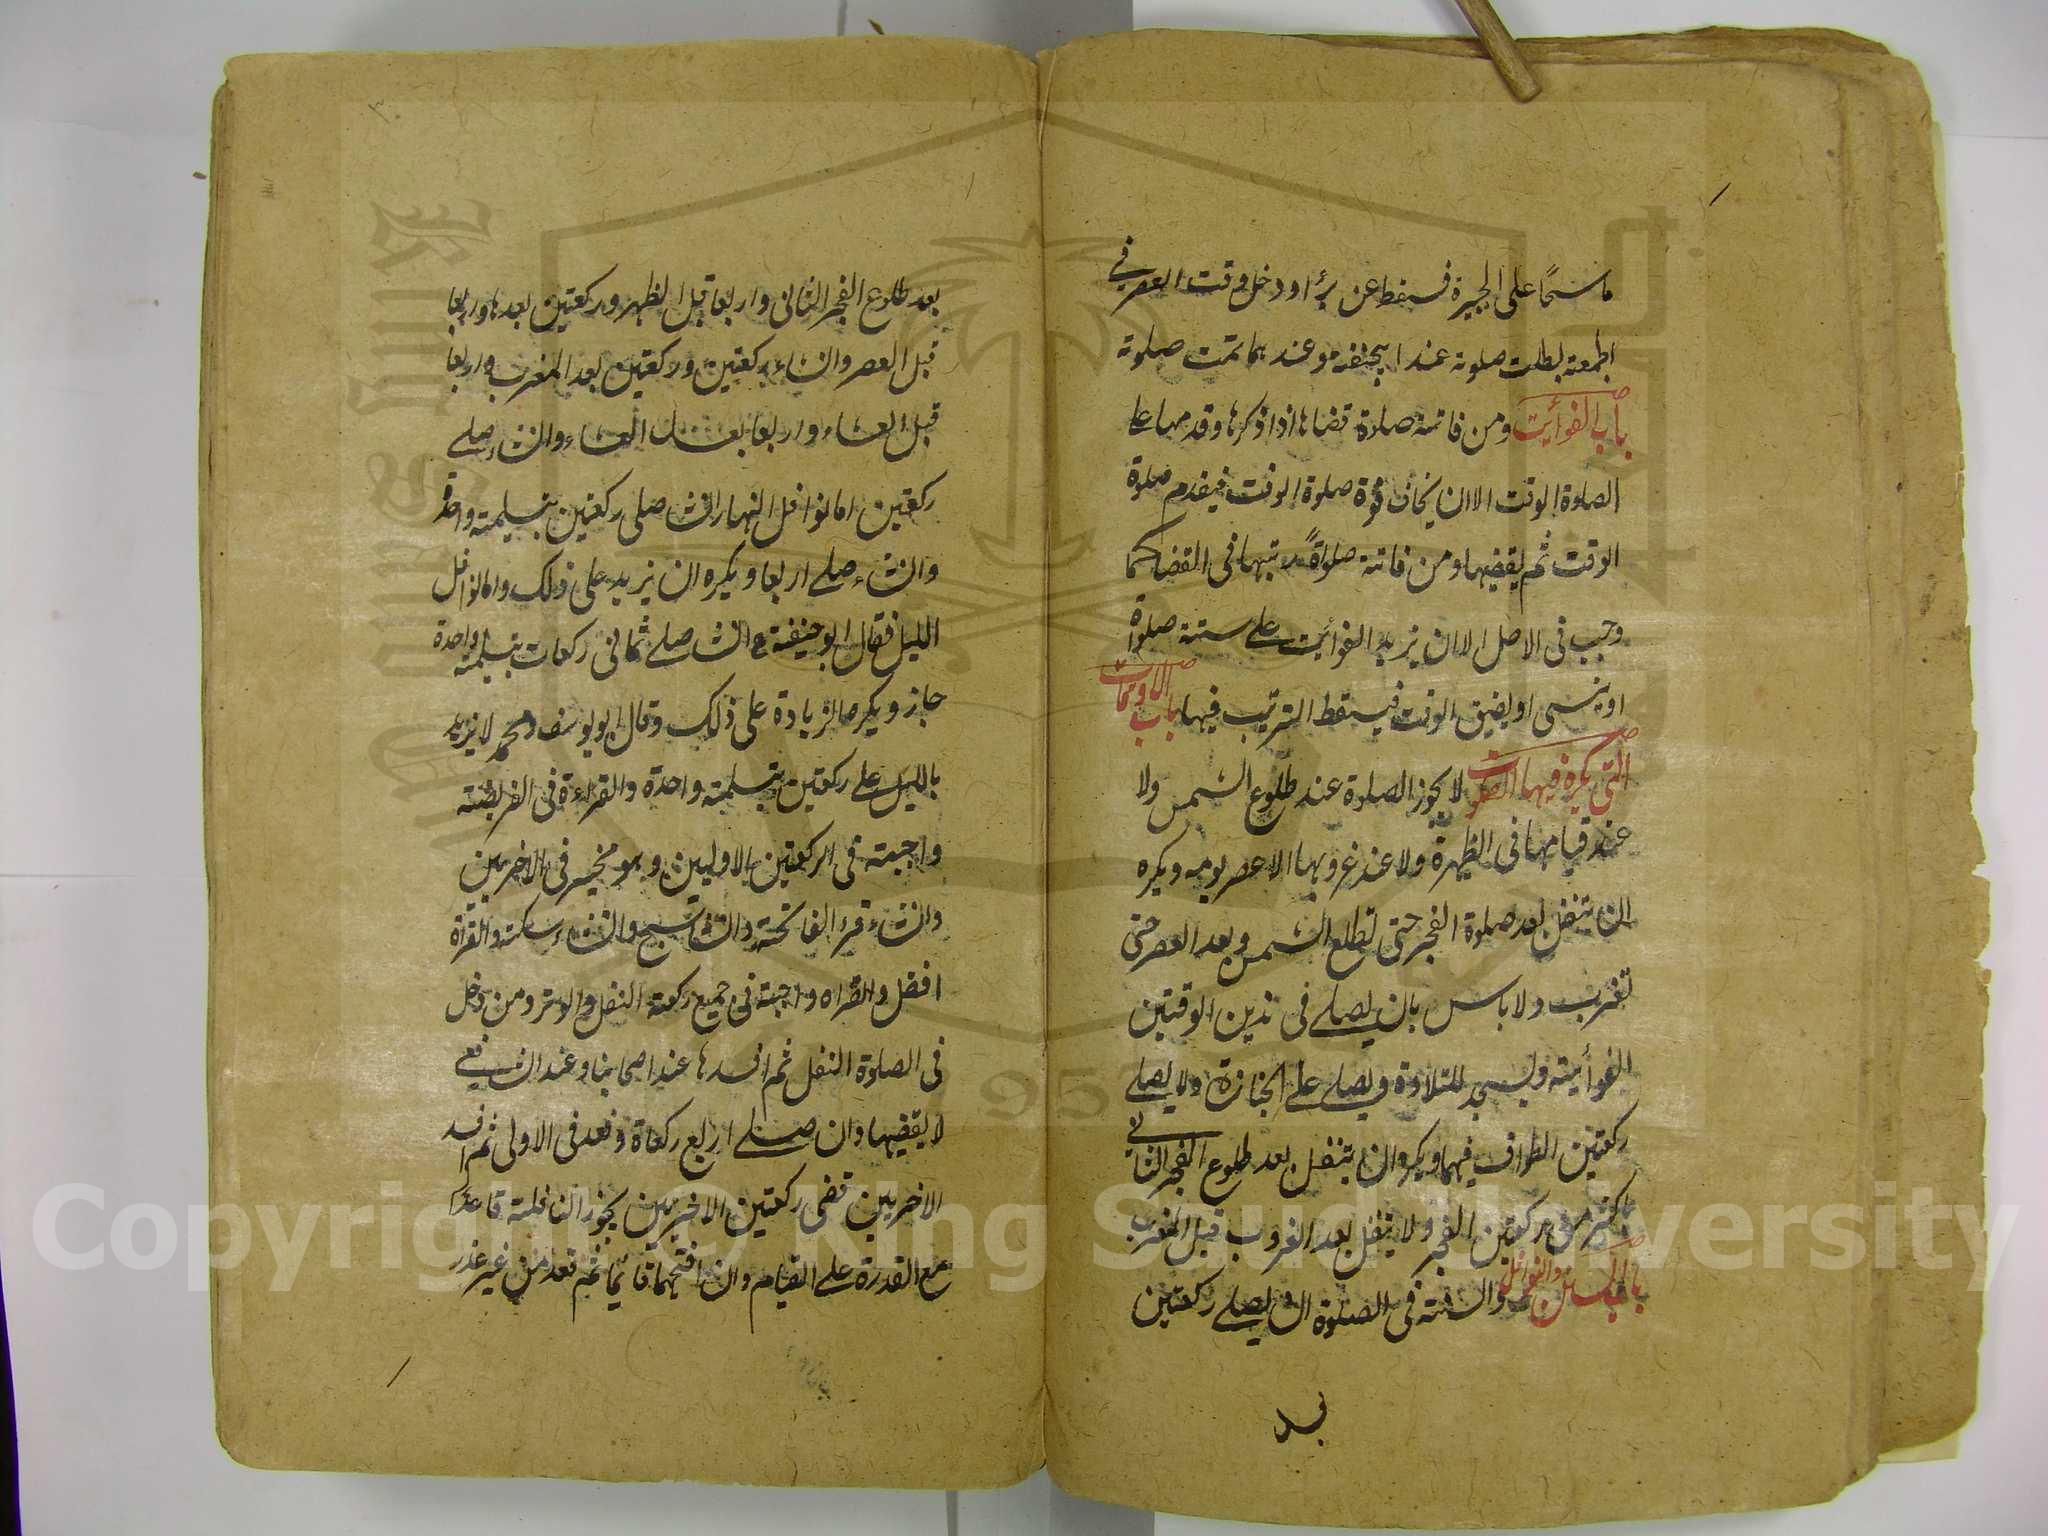 ماسحا على الجبيرة فسقط عن برأ او دخل وقت العصر في
الجمعة بطلت صلوته عند ابيحنيفة وعندهما تمت صلوته
باب الفوايت ومن فاتته صلوة قضاها اذا ذكرها وقدمها على
الصلوة الوقت الا ان يخاف فوة صلوة الوقت فيقدم صلوة
الوقت ثم يقضيها ومن فاتته صلواة رتبها في القضا كما
وجب في الاصل الا ان يزيد الفوائت على ستة صلواة
او ينسى او يضيق الوقت فيسقط الترتيب فيها باب الاوقات
التي يكره فيها الصلوت لا يجوز الصلوة عند طلوع الشمس ولا
عند قيامها في الظهيرة ولا عند غروبها الا عصر يومه ويكره
ان يتنفل بعد صلوة الفجر حتى تطلع الشمس وبعد العصر حتى
تغرب ولا باس بان يصلي في هذين الوقتين
الفوائية ويسجد للتلاوة ويصلي على الجنازة ولا يصلي
ركعتين الطواف فيهما ويكره ان يتنفل بعد طلوع الفجر الثاني
باكثر من ركعتين الفجر ولا يتنفل بعد الغروب قبل المغرب
باب السنن والنوافل والسنة في الصلوة ان يصلي ركعتين
بعد
بعد طلوع الفجر الثاني واربعا قبل الظهر وركعتين بعدها واربعا
قبل العصر وان شاء ركعتين وركعتين بعد المغرب واربعا
قبل العشاء واربعا بعد العشاء وان شاء صلي
ركعتين اما نوافل النهار ان شاء صلى ركعتين بتسليمة واحدة
وان شاء صلي اربعا ويكره ان يزيد على ذلك واما نوافل
الليل فقال ابو حنيفة ان شاء صلي ثماني ركعات بتسليمة واحدة
جاز ويكره الزيادة على ذلك وقال ابو يوسف ومحمد لا يزيد
بالليل على ركعتين بتسليمة واحدة والقراءة في الفريضة
واجبة في الركعتين الاوليين وهو مخير في الاخريين
وان شاء قرء الفاتحة وان شاء سبح وان شاء سكت والقراة
افضل والقراه واجبة في جميع ركعة النفل والوتر ومن دخل
في الصلوة النفل ثم افسدها عند اصحابنا وعند الشافعي
لا يقضيها وان صلي اربع ركعاة وقعد في الاولى ثم افسد
الاخريين قضى ركعتين الاخريين يجوز النافلة قاعدا
مع القدرة على القيام وان افتتحها قائما ثم قعد من غير عذر
Copyright © King Saud University